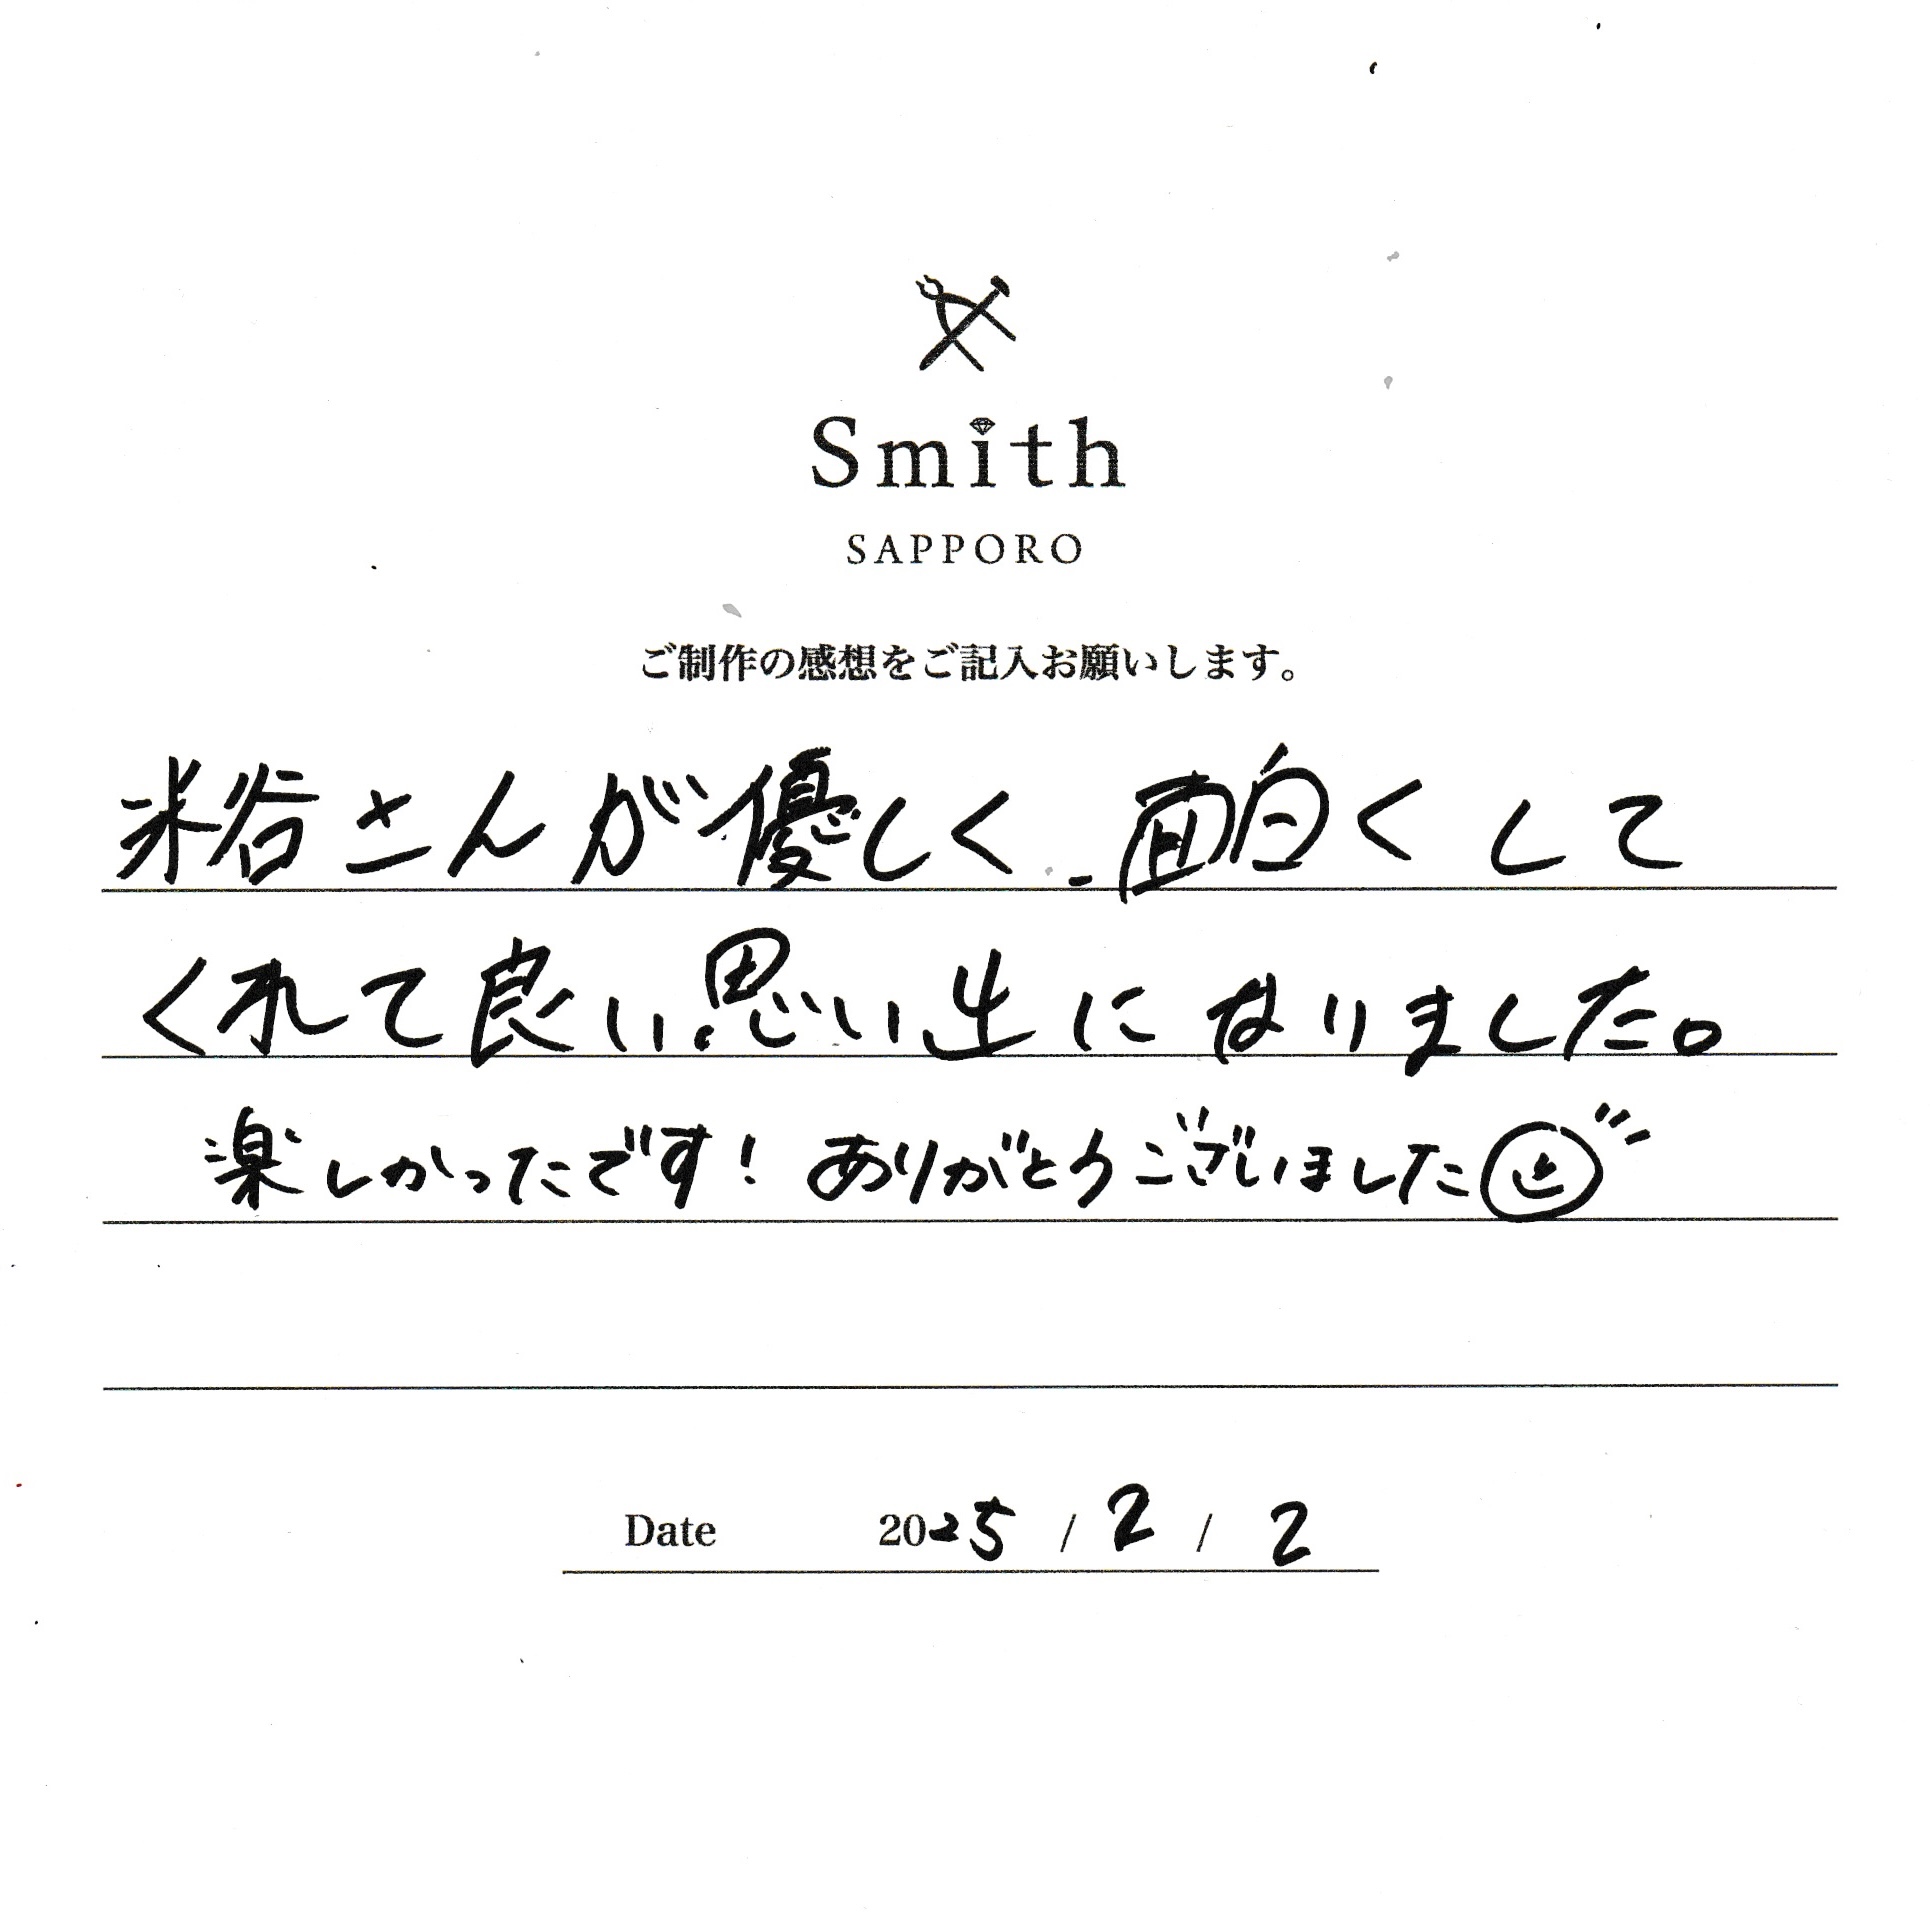 Smith
SAPPORO
ご制作の感想をご記入お願いします。
米谷さんが優しく、面白くして
くれて良い思い出になりました。
楽しかったです! ありがとうございました
Date 2025 / 2 / 2